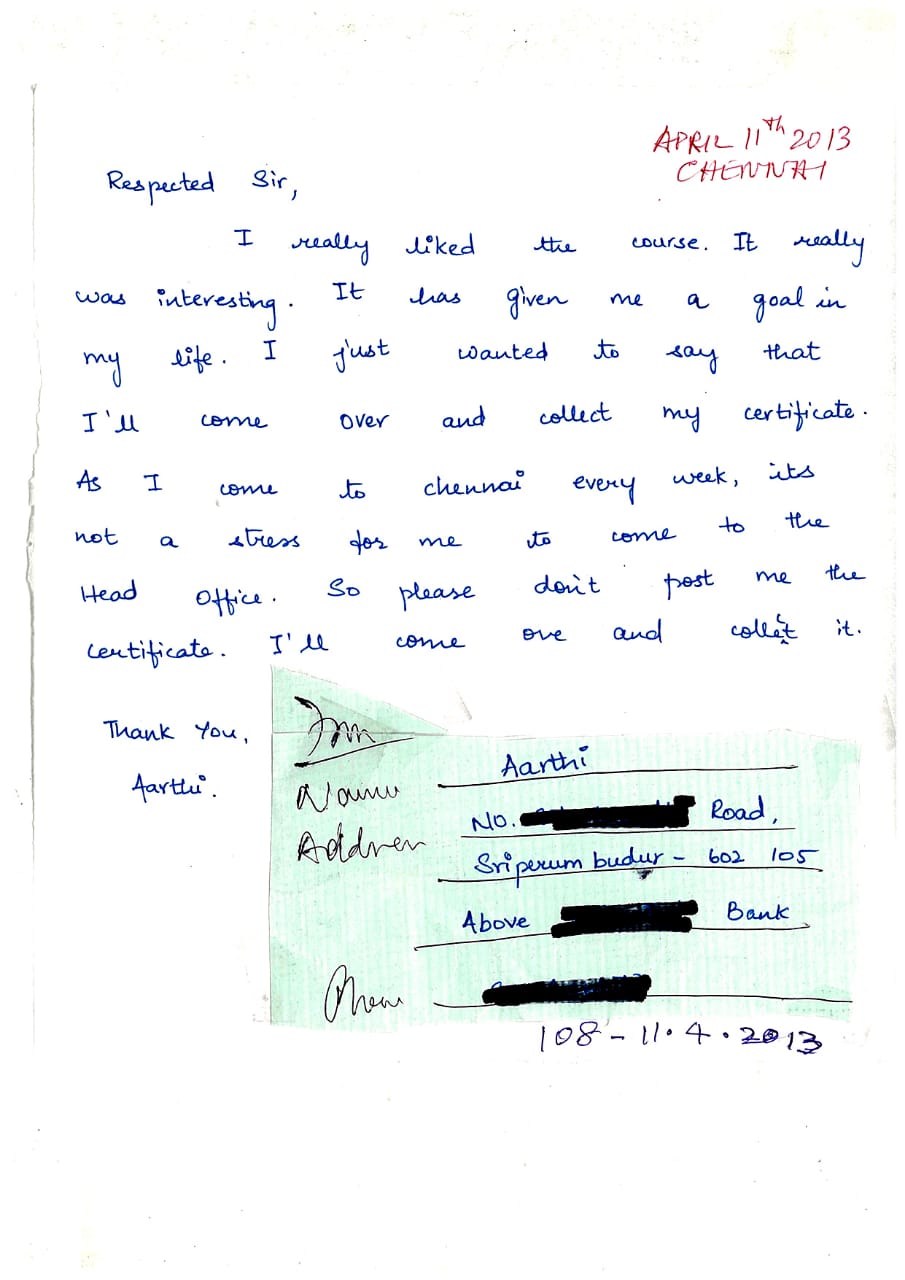 APRIL 11th 2013
CHENNAI
Respected Sir,
I really liked the course. It really
was interesting. It has given me a goal in
my life. I just wanted to say that
I'll come over and collect my certificate.
As I come to chennai every week, its
not a stress for me to come to the
Head Office. So please don't post me the
certificate. I'll come ove and collect it.
Thank You,
Aarthi.
Name Aarthi
Address No. Road,
Sriperum budur - 602 105
Above Bank
Phone
108 - 11.4.2013